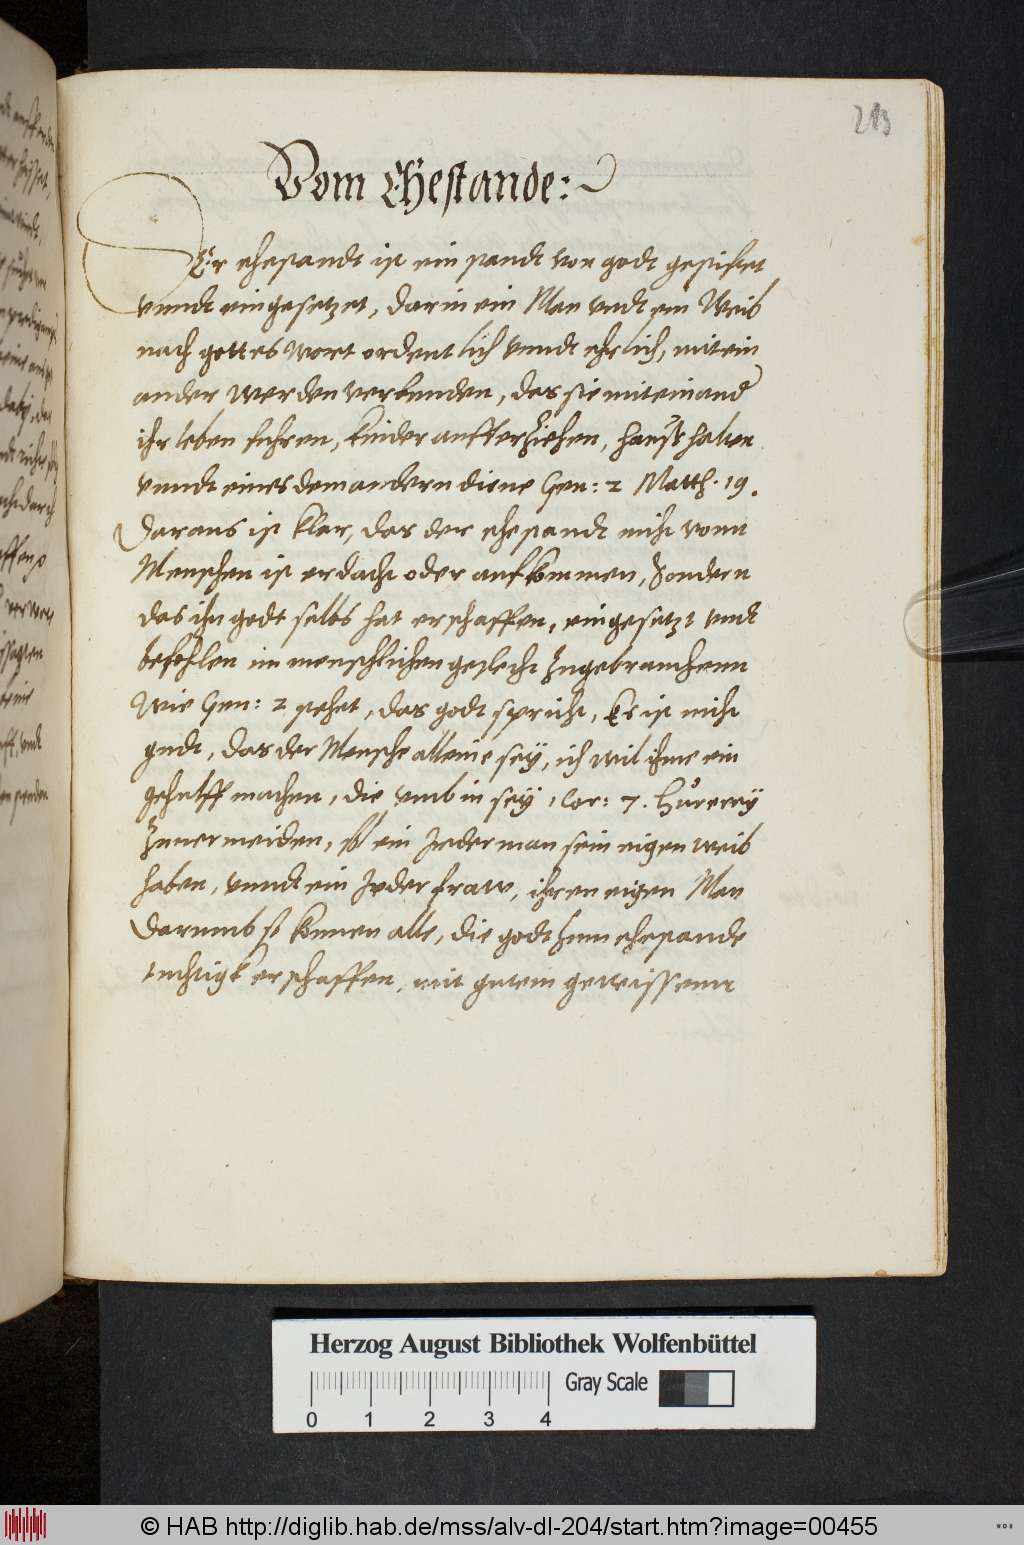 213
Vom Ehestande:
Der ehestandt ist ein standt von godt gestifftet
vnndt eingesetzet, darin ein Man vndt ein Weib
nach gottes Wort ordentlich vnndt ehrlich, mit ein
ander werden verbunden, das sie miteinand
ihr leben fuhren, kinder aufferziehen, haußhalten
vnndt eines dem andern diene Gen: 2 Matth. 19.
Daraus ist klar, das der ehestandt nicht vonn
Menschen ist erdacht oder aufkommen, Sondern
das ihn godt selbs hat erschaffen, eingesetzt vndt
befohlen im menschlichen geslecht zugebrauchenn
Wie Gen: 2 stehet, das godt spricht, Es ist nicht
gudt, das der Mensche alleine sey, ich wil ihme ein
gehulff machen, die vmb in sey 1 Cor: 7. Hurerey
zuuermeiden, sol ein Jederman sein eigen weib
haben, vnndt ein Jeder fraw, ihren eigen Man
Darumb so konnen alle, die godt zum ehestande
tuchtigk erschaffen, mit gutem gewissenn
Herzog August Bibliothek Wolfenbüttel
Gray Scale
0 1 2 3 4
© HAB http://diglib.hab.de/mss/alv-dl-204/start.htm?image=00455